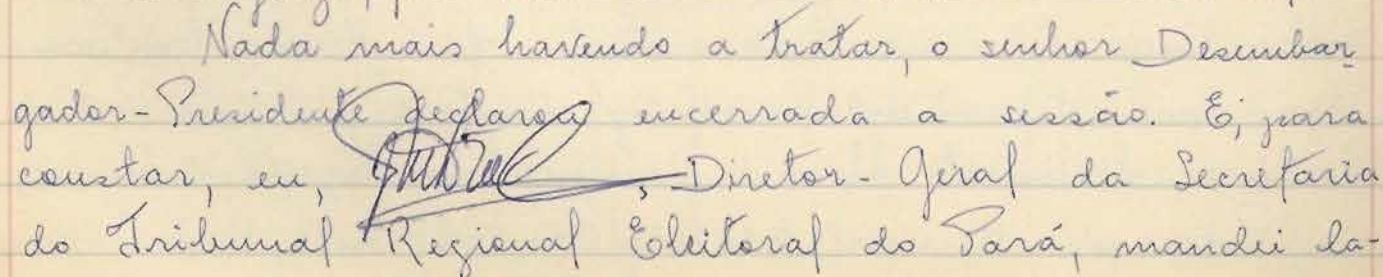 Nada mais havendo a tratar, o senhor Desembar
gador-Presidente declarou encerrada a sessão. E, para
constar, eu, , Diretor-Geral da Secretaria
do Tribunal Regional Eleitoral do Pará, mandei la-